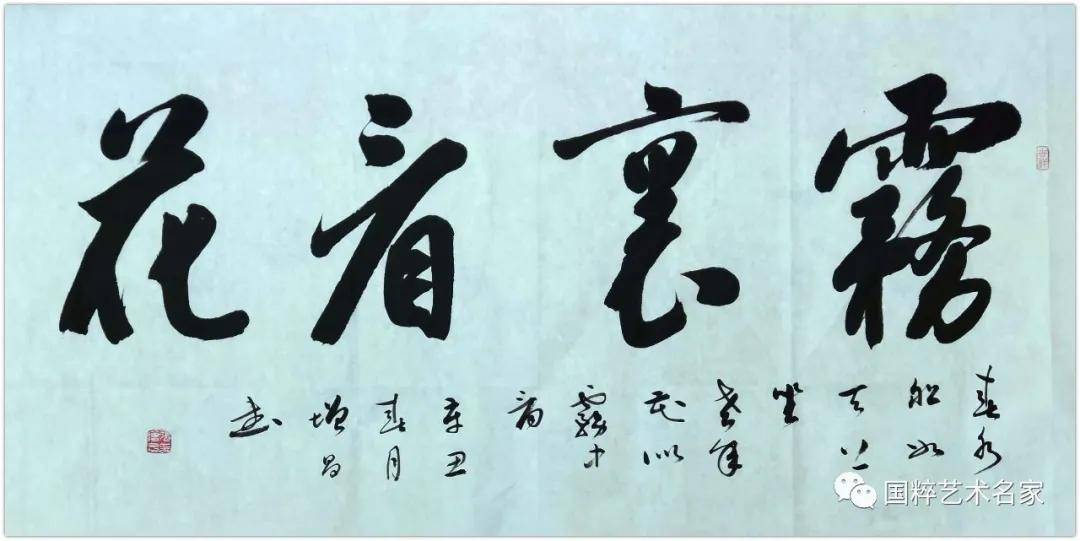 霧裏看花
春水
船如
天上
坐
老年
花似
霧中
看
辛丑
春月
增昌
书
国粹艺术名家